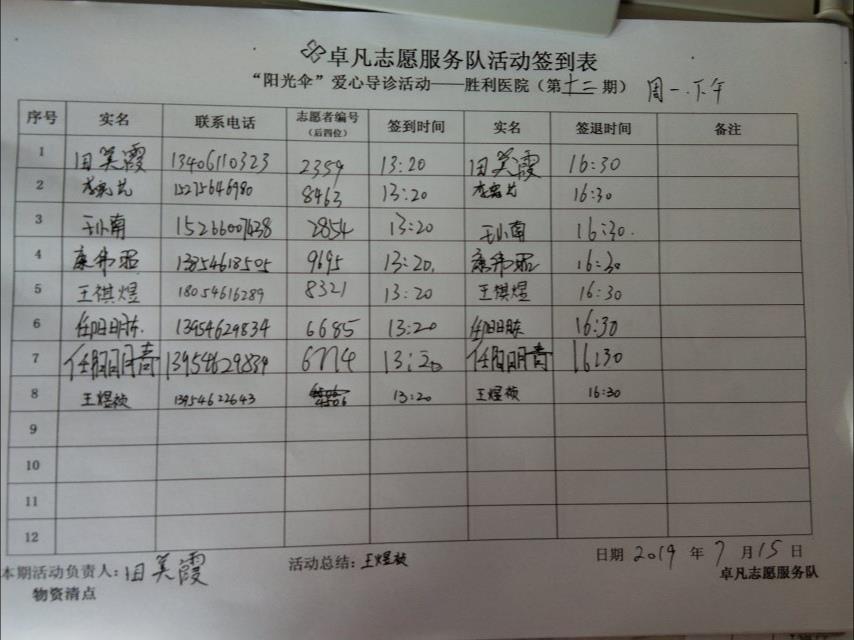 卓凡志愿服务队活动签到表
“阳光伞”爱心导诊活动——胜利医院（第十二期） 周一.下午
序号 实名 联系电话 志愿者编号（后四位） 签到时间 实名 签退时间 备注
1 田美霞 13406110323 2359 13:20 田美霞 16:30
2 15275646980 8463 13:20 16:30
3 15266007638 2854 13:20 16:30.
4 康伟昭 13854618505 9695 13:20. 康伟昭 16:30
5 王祺煜 18054616289 8321 13:20 王祺煜 16:30
6 13954629834 6685 13:20 16:30
7 13954629834 6774 13:20 16:30
8 王煜祯 13954622643 4506 13:20 王煜祯 16:30
9
10
11
12
本期活动负责人：田美霞 活动总结：王煜祯 日期 2019 年 7 月 15 日
物资清点 卓凡志愿服务队